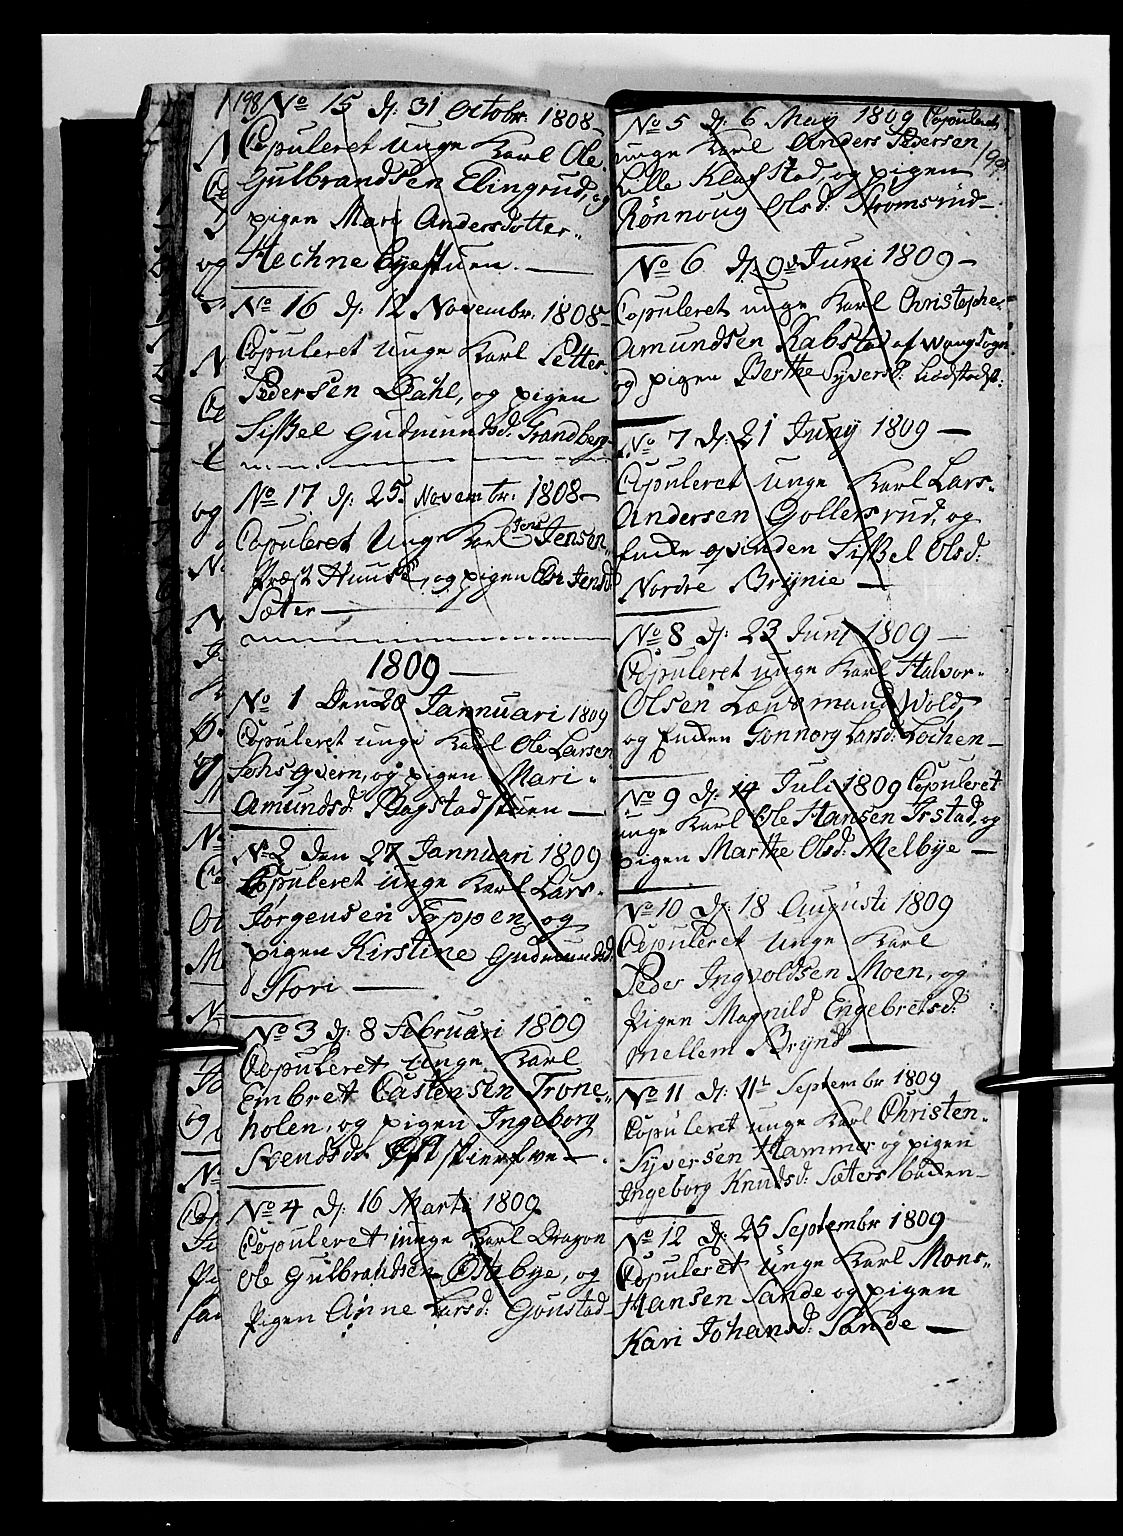 198
No 15 d: 31 Octobr: 1808 –
Copuleret unge Karl Ole
Gulbrandsen Elingrud, og
pigen Mari Andersdotter
Hechne Eyestuen. —
No 16 d: 12 Novembr: 1808 –
Copuleret unge Karl Petter
Pedersen Dahl, og pigen
Sißel Gudmundsd: Grandberg
No 17 d: 25. Novembr: 1808 –
Copuleret Unge Karl Jens Jensen
Præst Huuse, og pigen Else Jensd
Sæter —
1809 —
No 1 Den 20 Jannuari 1809
Copuleret unge Karl Ole Larsen
qvern, og pigen Mari
Amundsd: Bogstadstuen —
No 2 den 27 Jannuari 1809
Copuleret unge Karl Lars
Jørgensen Toppen, og
pigen Kirstine Gudmundsd:
Stori —
No 3 d: 8 Februari 1809
Copuleret unge Karl
Embret Castensen Trone
holen, og pigen Ingeborg
Svendsd: Øst —
No 4 d: 16 Marti 1809
Copuleret unge Karl Dragon
Ole Gulbrandsen Østebye, og
Pigen Anne Larsd: Gonstad
No 5 d: 6 May 1809 Copuleret
unge Karl Anders Pedersen
Lille Klafstad, og pigen
Rønnoug Olsd: Stromsrud –
No 6 d: 9d Juni 1809 –
Copuleret unge Karl Christopher
Amundsen Kabstad af Wang Sogn
og pigen Berthe Syversd:
No 7 d: 21 Juny 1809 —
Copuleret unge Karl Lars
Andersen Gollersrud, og
Enke qvinden Sißel Olsd:
Nordre Brÿnie —
No 8 d: 23 Juni 1809 —
Copuleret unge Karl Halvor
Olsen Lænsmand Wold,
og Enken Gonnorg Larsd: Lochen –
No 9 d: 14 Juli 1809 Copuleret
unge Karl Ole Hansen Irstad, og
pigen Marthe Olsd: Melbÿe —
No 10 d: 18 Augusti 1809
Copuleret unge Karl
Peder Ingvoldsen Moen, og
Pigen Magnild Engebretsd:
mellem Brÿnd —
No 11 d: 11t Septembr 1809
Copuleret unge Karl Christen
Syversen Hammer og pigen
Ingeborg Knudsd: Sæters backen –
No 12 d: 25 Septembr 1809
Copuleret unge Karl Mons
Hansen Sande og pigen
Kari Johansd: Sande —